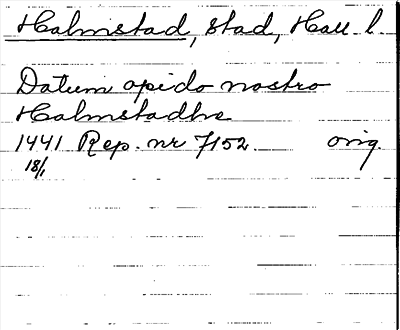 Halmstad, stad, Hall l.
Datum opido nostro
Halmstadhe
1441 Rep. nr 7152 orig.
18/1